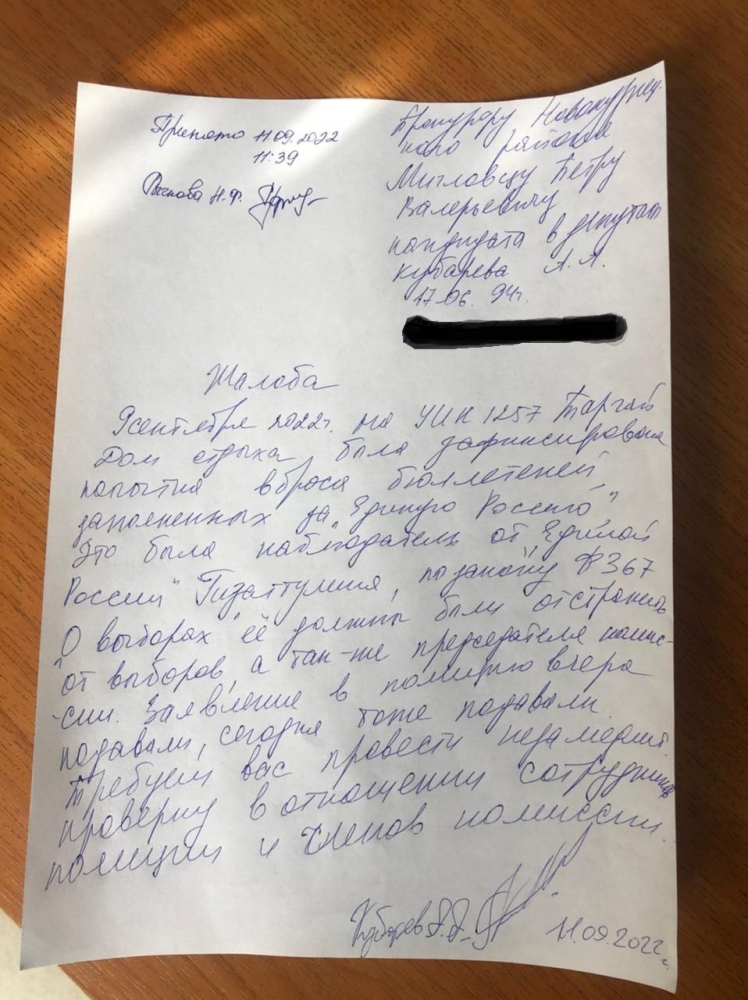 Принято 11.09.2022
11:39
Рычкова Н.Ф.
Прокурору Новокузнец-
кого района
Мигловцу Петру
Валерьевичу
кандидата в депутаты
Кубарева А.А.
17.06.94г.
Жалоба
9 сентября 2022г. на УИК 1257 Таргай
Дом отдыха, была зафиксирована
попытка вброса бюллетеней
заполненных за "Единую Россию"
Это была наблюдатель от "Единой
России" Гизаттулина, по закону ФЗ67
"О выборах" её должны были отстранить
от выборов, а так-же председателя комис-
-сии. Заявление в полицию вчера
подавали, сегодня тоже подавали.
Требуем вас провести незамедлит.
проверку в отношении сотрудников
полиции и членов комиссии.
Кубарев А.А.
11.09.2022г.